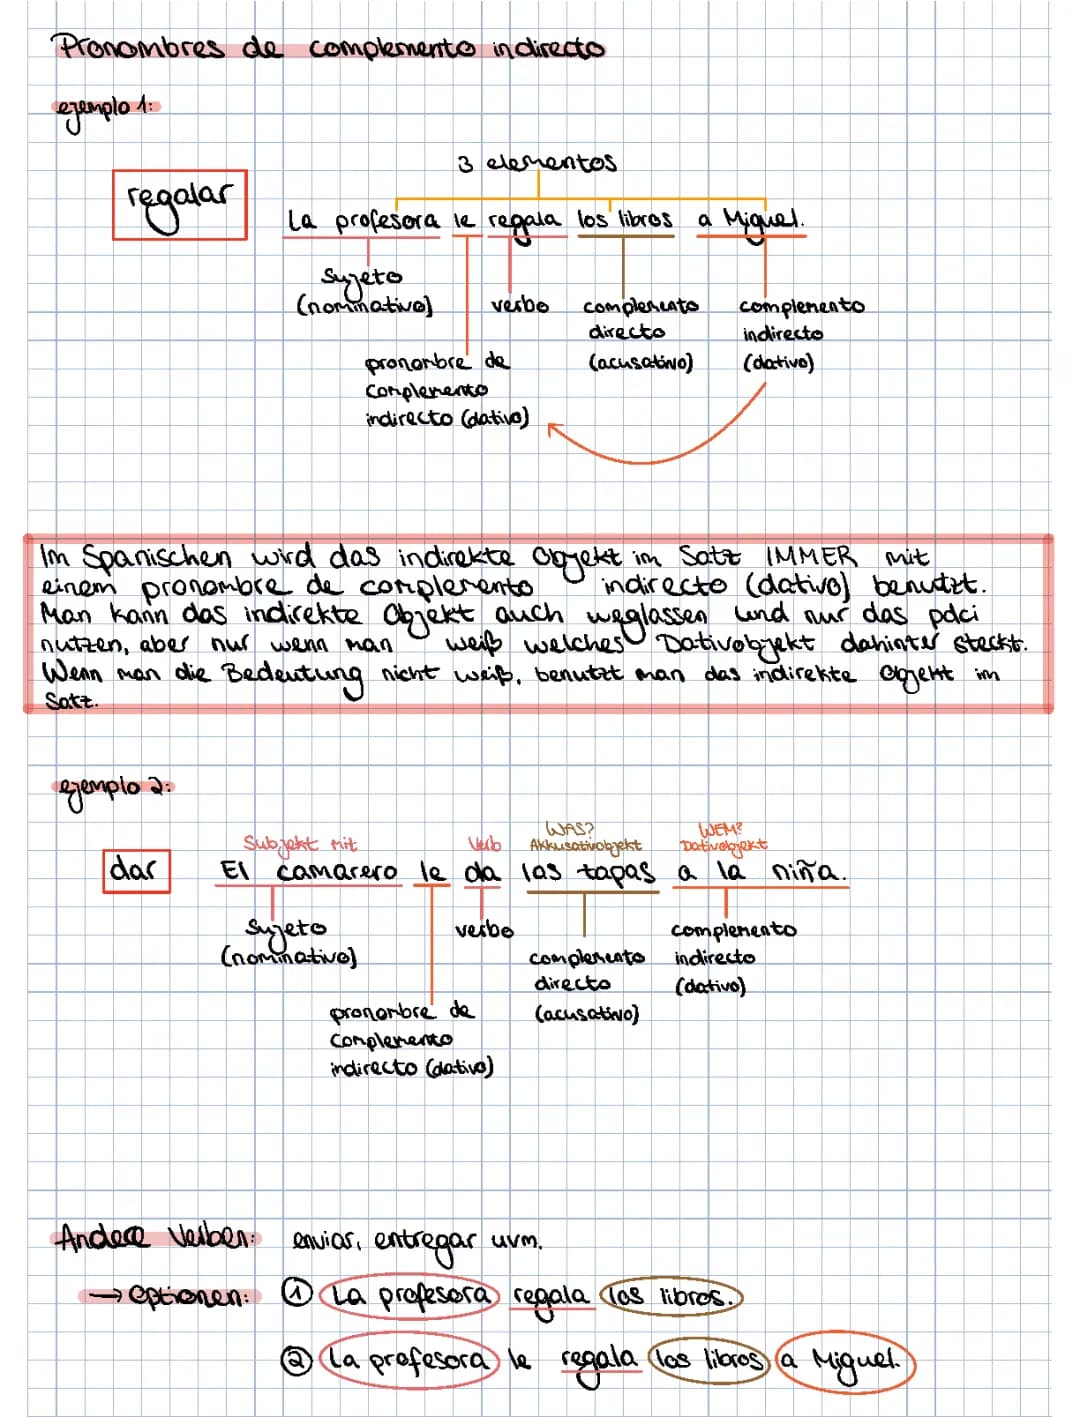 Pronombres de complemento indirecto
ejemplo 1:
3 elementos
regalar
La profesora le regala los libros a Miguel.
Sujeto
(nominativo)
verbo
complemento
directo
(acusativo)
complemento
indirecto
(dativo)
pronombre de
complemento
indirecto (dativo)
Im Spanischen wird das indirekte Objekt im Satz IMMER mit
einem pronombre de complemento indirecto (dativo) benutzt.
Man kann das indirekte Objekt auch weglassen und nur das pdci
nutzen, aber nur wenn man weiß welches Dativobjekt dahinter steckt.
Wenn man die Bedeutung nicht weiß, benutzt man das indirekte Objekt im
Satz.
ejemplo 2:
Subjekt mit Verb WAS? Akkusativobjekt WEM? Dativobjekt
dar
El camarero le da las tapas a la niña.
Sujeto
(nominativo)
verbo
complemento
directo
(acusativo)
complemento
indirecto
(dativo)
pronombre de
complemento
indirecto (dativo)
Andere Verben: enviar, entregar uvm.
→ Optionen: ① La profesora regala los libros.
② La profesora le regala los libros a Miguel.